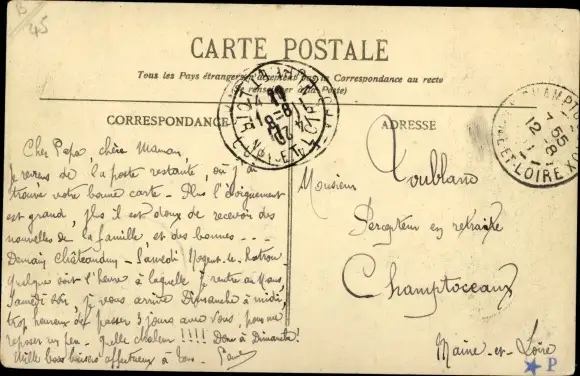 B
45
CARTE POSTALE
Tous les Pays étrangers n'acceptent pas la Correspondance au recto
(se renseigner à la Poste)
CORRESPONDANCE
ADRESSE
Cher Papa, chère Maman,
Je reviens de la poste restante, où j'ai
trouvé votre bonne carte. Plus l'éloignement
est grand, plus il est doux de recevoir des
nouvelles de la famille, et des bonnes ...
Demain Châteaudun - Samedi Nogent-le-Rotrou.
Quelque soit l'heure à laquelle je rentre au Mans,
Samedi soir, je vous arrive Dimanche à midi,
trop heureux de passer 3 jours avec vous, pour me
reposer un peu - quelle chaleur !!!! Donc à Dimanche!
Mille bons baisers affectueux à tous.
Monsieur
Toublanc
Percepteur en retraite
Champtoceaux
Maine-et-Loire
CHAMPTO
NE-ET-LOIRE
P